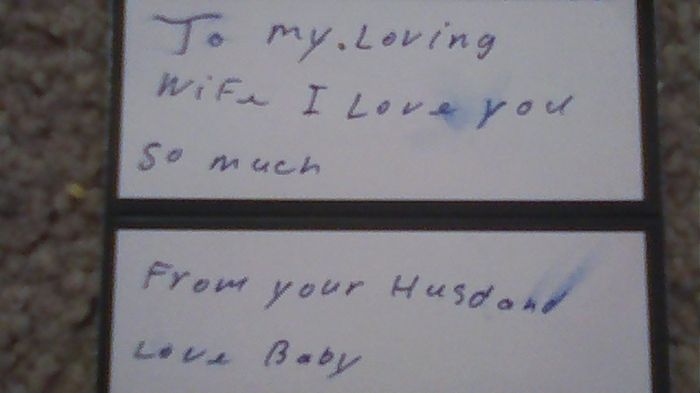 To my.Loving
Wife I Love you
So much
From your Husdand
Love Baby